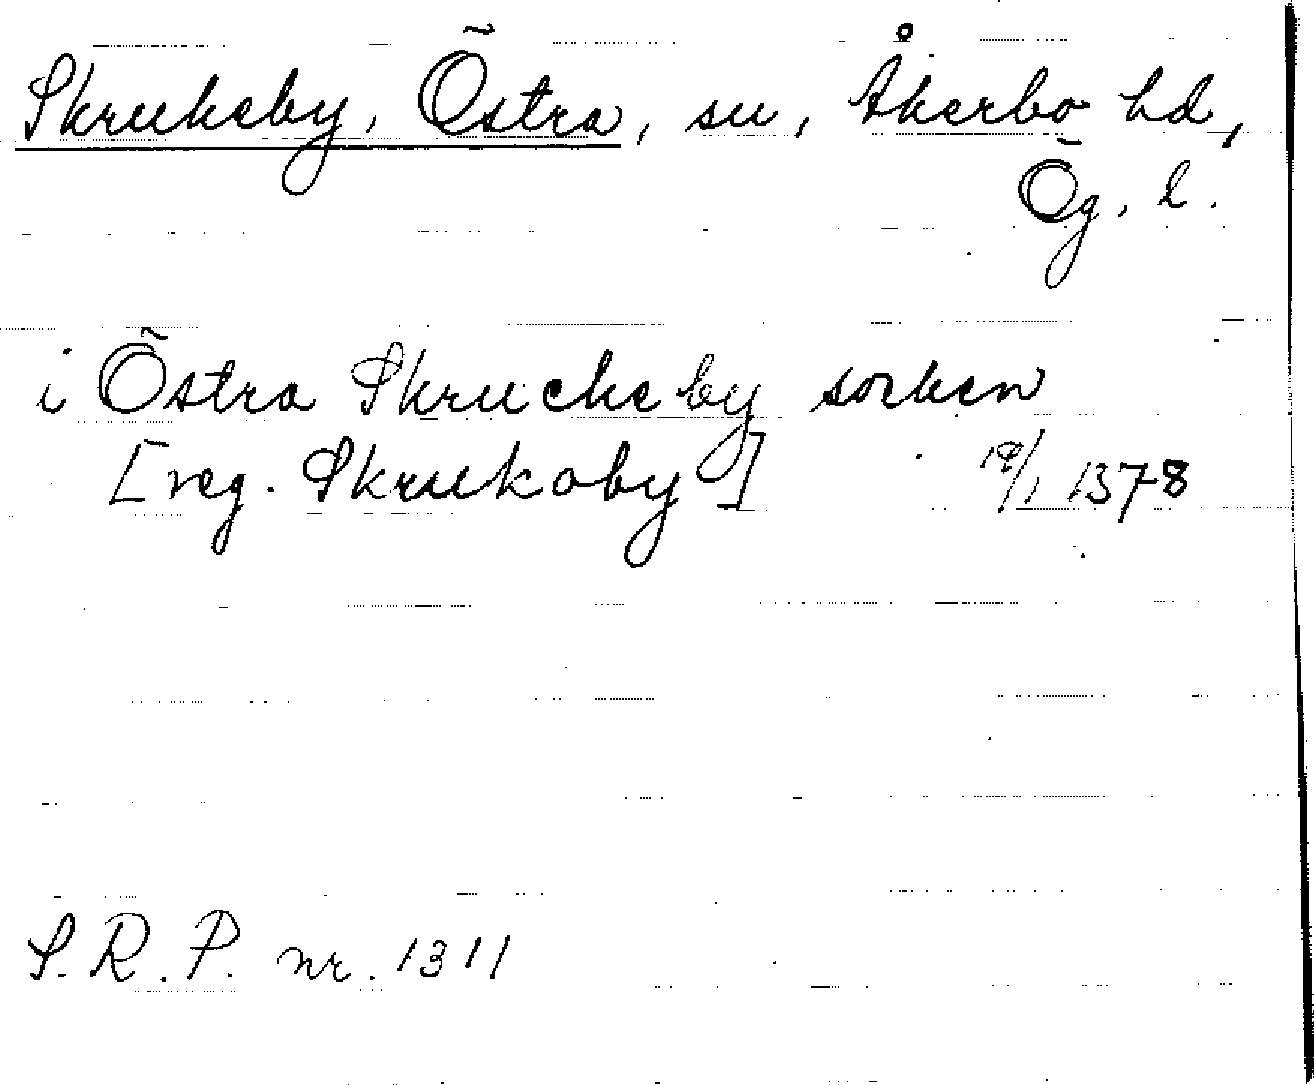 Skrukeby, Östra, sn, Åkerbo hd,
Ög. l.
i Östra Skruckeby socken
[reg. Skrukoby] 19/1 1378
S.R.P. nr. 1311